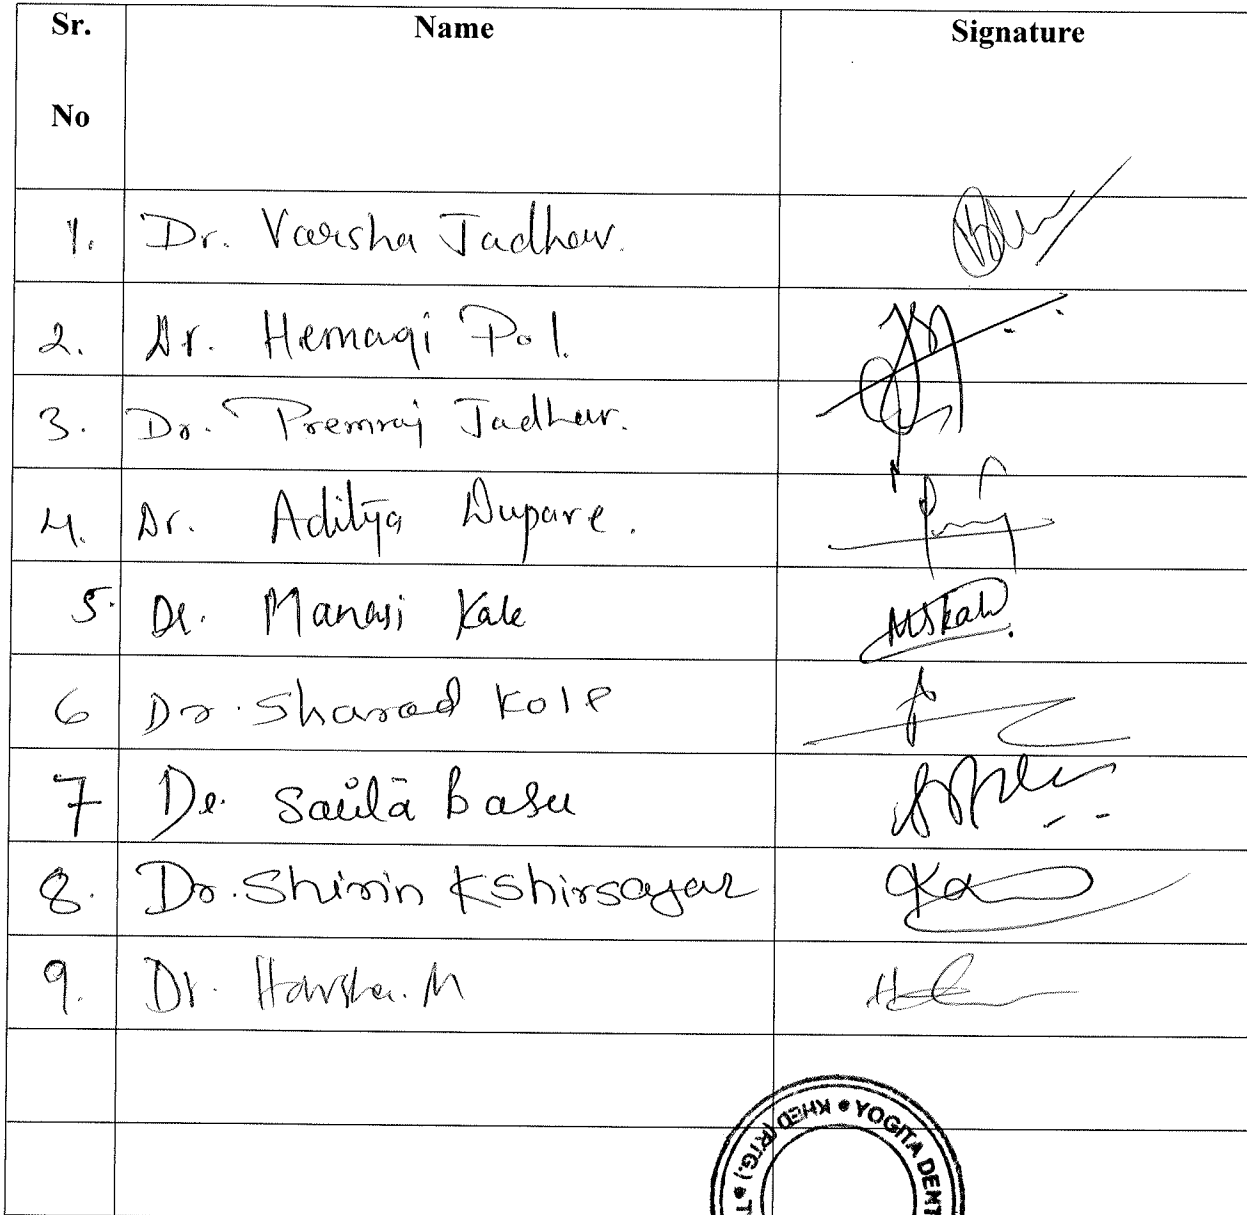 Sr. No Name Signature
1. Dr. Varsha Jadhav.
2. Dr. Hemagi Pol.
3. Dr. Premraj Jadhav.
4. Dr. Aditya Dupare.
5. Dr. Manasi Kale MSKale
6 Dr. Sharad Kole
7 Dr. Basu
8. Dr. Shirin Kshirsagar
9. Dr. Harsha. M
KHED (RTG.) • YOGITA DENT